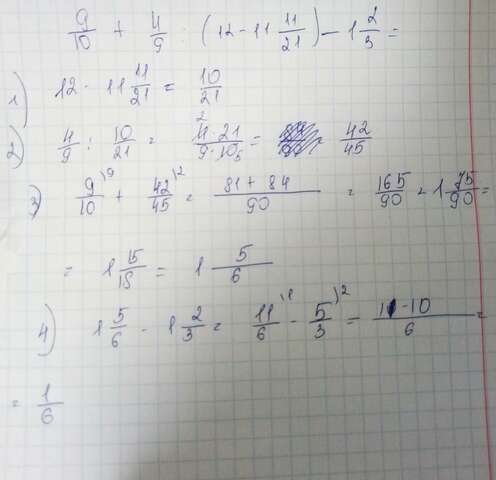 9/10 + 4/9 : (12 - 11 11/21) - 1 2/3 =
1) 12 - 11 11/21 = 10/21
2) 4/9 : 10/21 = 4·21/9·10 = 42/45
3) 9/10 + 42/45 = 81 + 84/90 = 165/90 = 1 75/90 =
= 1 15/18 = 1 5/6
4) 1 5/6 - 1 2/3 = 11/6 - 5/3 = 11 - 10/6 =
= 1/6